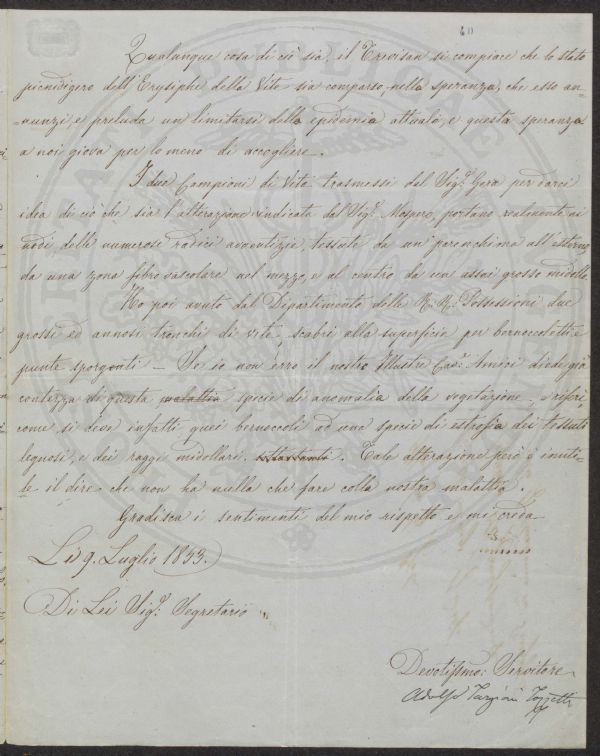 40
Qualunque cosa di ciò sia, il Trevisan si compiace che lo stato
picnidigero dell'Erysiphe della Vite sia comparso, nella speranza, che esso an-
=nunzi, e preluda un limitarsi della epidemia attuale, e questa speranza
a noi giova per lo meno di accogliere.
I due Campioni di Vite trasmessi dal Sigr. Gera per darci
idea di ciò che sia l'alterazione indicata dal Sigr. Mospero, portano realmente ai
nodi delle numerose radici avventizie, tessute da un parenchima all'esterno,
da una zona fibro vascolare nel mezzo, e al centro da un assai grosso midollo.
Ho poi avuto dal Dipartimento delle RR. Possessioni due
grossi ed annosi tronchi di vite, scabri alla superficie per bernoccoletti e
punte sporgenti — Se io non erro il nostro Illustre Cav. Amici diede già
contezza di questa malattia specie di anomalia della vegetazione, e riferì,
come si deve infatti quei bernoccoli ad una specie di estrofia dei tessuti
legnosi, e dei raggi midollari. Tale alterazione però è inuti-
=le il dire che non ha nulla che fare colla nostra malattia.
Gradisca i sentimenti del mio rispetto e mi creda
Li 9. Luglio 1853.
Di Lei Sigr. Segretario
Devotissmo: Servitore
Adolfo Targioni Tozzetti